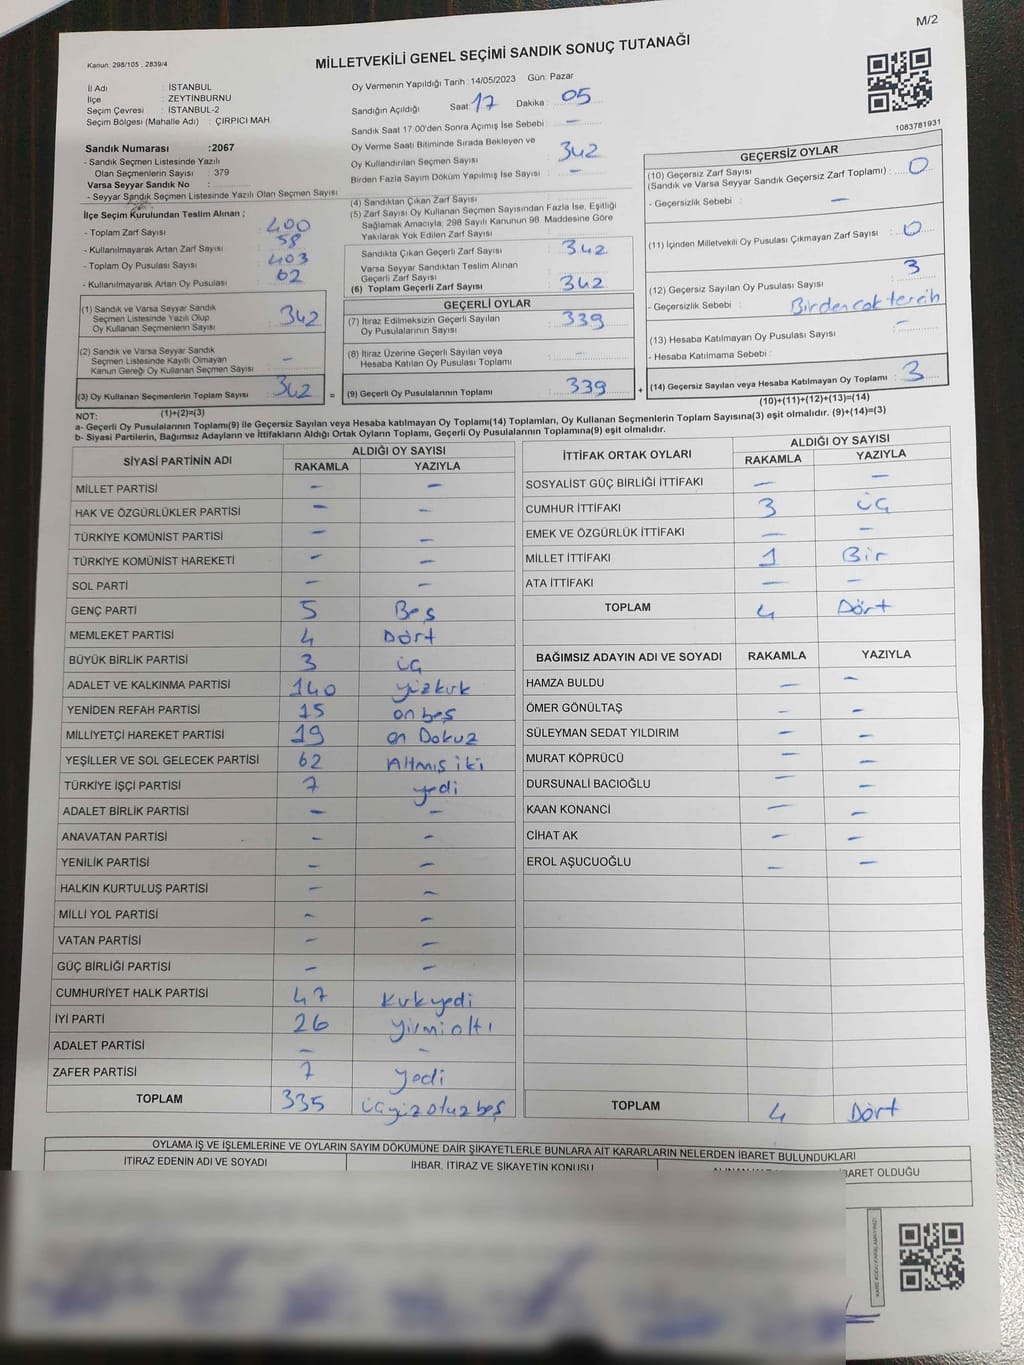 M/2
MİLLETVEKİLİ GENEL SEÇİMİ SANDIK SONUÇ TUTANAĞI
Kanun: 298/105 , 2839/4
İl Adı : İSTANBUL
İlçe : ZEYTİNBURNU
Seçim Çevresi : İSTANBUL-2
Seçim Bölgesi (Mahalle Adı) : ÇIRPICI MAH.
Sandık Numarası :2067
- Sandık Seçmen Listesinde Yazılı
Olan Seçmenlerin Sayısı : 379
Varsa Seyyar Sandık No :
- Seyyar Sandık Seçmen Listesinde Yazılı Olan Seçmen Sayısı :
İlçe Seçim Kurulundan Teslim Alınan ;
- Toplam Zarf Sayısı : 400
- Kullanılmayarak Artan Zarf Sayısı : 58
- Toplam Oy Pusulası Sayısı : 403
- Kullanılmayarak Artan Oy Pusulası : 62
(1) Sandık ve Varsa Seyyar Sandık
Seçmen Listesinde Yazılı Olup
Oy Kullanan Seçmenlerin Sayısı : 342
(2) Sandık ve Varsa Seyyar Sandık
Seçmen Listesinde Kayıtlı Olmayan
Kanun Gereği Oy Kullanan Seçmen Sayısı : –
(3) Oy Kullanan Seçmenlerin Toplam Sayısı : 342
(1)+(2)=(3)
Oy Vermenin Yapıldığı Tarih : 14/05/2023 Gün: Pazar
Sandığın Açıldığı Saat: 17 Dakika : 05
Sandık Saat 17:00'den Sonra Açımış İse Sebebi : –
Oy Verme Saati Bitiminde Sırada Bekleyen ve
Oy Kullandırılan Seçmen Sayısı : 342
Birden Fazla Sayım Döküm Yapılmış İse Sayısı : –
(4) Sandıktan Çıkan Zarf Sayısı :
(5) Zarf Sayısı Oy Kullanan Seçmen Sayısından Fazla İse, Eşitliği
Sağlamak Amacıyla; 298 Sayılı Kanunun 98. Maddesine Göre
Yakılarak Yok Edilen Zarf Sayısı :
Sandıkta Çıkan Geçerli Zarf Sayısı : 342
Varsa Seyyar Sandıktan Teslim Alınan
Geçerli Zarf Sayısı :
(6) Toplam Geçerli Zarf Sayısı : 342
GEÇERLİ OYLAR
(7) İtiraz Edilmeksizin Geçerli Sayılan
Oy Pusulalarının Sayısı : 339
(8) İtiraz Üzerine Geçerli Sayılan veya
Hesaba Katılan Oy Pusulası Toplamı : –
= (9) Geçerli Oy Pusulalarının Toplamı : 339 +
1083781931
GEÇERSİZ OYLAR
(10) Geçersiz Zarf Sayısı
(Sandık ve Varsa Seyyar Sandık Geçersiz Zarf Toplamı) : 0
- Geçersizlik Sebebi : –
(11) İçinden Milletvekili Oy Pusulası Çıkmayan Zarf Sayısı : 0
(12) Geçersiz Sayılan Oy Pusulası Sayısı : 3
- Geçersizlik Sebebi : Birden çok tercih
(13) Hesaba Katılmayan Oy Pusulası Sayısı : –
- Hesaba Katılmama Sebebi :
(14) Geçersiz Sayılan veya Hesaba Katılmayan Oy Toplamı : 3
(10)+(11)+(12)+(13)=(14)
NOT:
a- Geçerli Oy Pusulalarının Toplamı(9) ile Geçersiz Sayılan veya Hesaba katılmayan Oy Toplamı(14) Toplamları, Oy Kullanan Seçmenlerin Toplam Sayısına(3) eşit olmalıdır. (9)+(14)=(3)
b- Siyasi Partilerin, Bağımsız Adayların ve İttifakların Aldığı Ortak Oyların Toplamı, Geçerli Oy Pusulalarının Toplamına(9) eşit olmalıdır.
SİYASİ PARTİNİN ADI ALDIĞI OY SAYISI
RAKAMLA YAZIYLA
MİLLET PARTİSİ – –
HAK VE ÖZGÜRLÜKLER PARTİSİ – –
TÜRKİYE KOMÜNİST PARTİSİ – –
TÜRKİYE KOMÜNİST HAREKETİ – –
SOL PARTİ – –
GENÇ PARTİ 5 Beş
MEMLEKET PARTİSİ 4 Dört
BÜYÜK BİRLİK PARTİSİ 3 üç
ADALET VE KALKINMA PARTİSİ 140 yüzkırk
YENİDEN REFAH PARTİSİ 15 on beş
MİLLİYETÇİ HAREKET PARTİSİ 19 on Dokuz
YEŞİLLER VE SOL GELECEK PARTİSİ 62 Altmış iki
TÜRKİYE İŞÇİ PARTİSİ 7 yedi
ADALET BİRLİK PARTİSİ – –
ANAVATAN PARTİSİ – –
YENİLİK PARTİSİ – –
HALKIN KURTULUŞ PARTİSİ – –
MİLLİ YOL PARTİSİ – –
VATAN PARTİSİ – –
GÜÇ BİRLİĞİ PARTİSİ – –
CUMHURİYET HALK PARTİSİ 47 Kırkyedi
İYİ PARTİ 26 yirmi altı
ADALET PARTİSİ – –
ZAFER PARTİSİ 7 yedi
TOPLAM 335 üçyüz otuz beş
İTTİFAK ORTAK OYLARI ALDIĞI OY SAYISI
RAKAMLA YAZIYLA
SOSYALİST GÜÇ BİRLİĞİ İTTİFAKI – –
CUMHUR İTTİFAKI 3 üç
EMEK VE ÖZGÜRLÜK İTTİFAKI – –
MİLLET İTTİFAKI 1 Bir
ATA İTTİFAKI – –
TOPLAM 4 Dört
BAĞIMSIZ ADAYIN ADI VE SOYADI RAKAMLA YAZIYLA
HAMZA BULDU – –
ÖMER GÖNÜLTAŞ – –
SÜLEYMAN SEDAT YILDIRIM – –
MURAT KÖPRÜCÜ – –
DURSUNALİ BACIOĞLU – –
KAAN KONANCİ – –
CİHAT AK – –
EROL AŞUCUOĞLU – –
TOPLAM 4 Dört
OYLAMA İŞ VE İŞLEMLERİNE VE OYLARIN SAYIM DÖKÜMÜNE DAİR ŞİKAYETLERLE BUNLARA AİT KARARLARIN NELERDEN İBARET BULUNDUKLARI
İTİRAZ EDENİN ADI VE SOYADI İHBAR, İTİRAZ VE ŞİKAYETİN KONUSU İBARET OLDUĞU